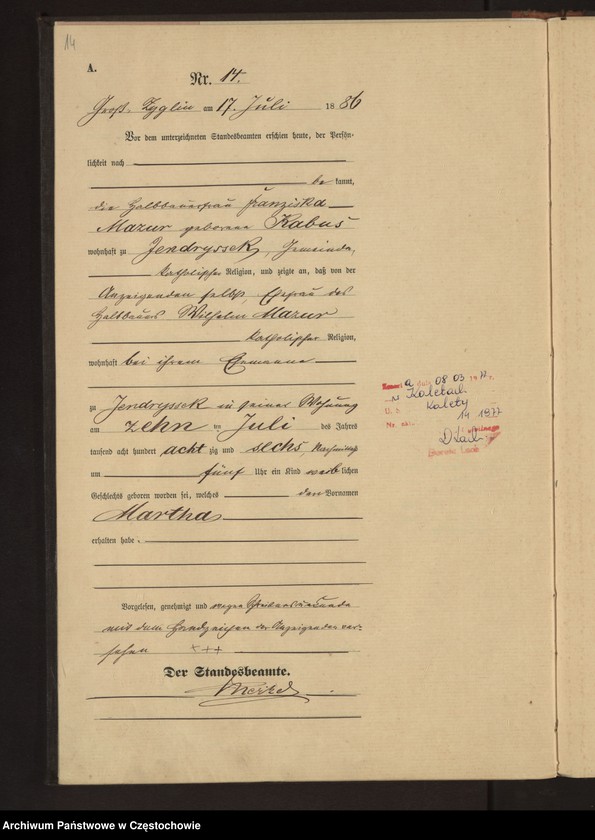 14
A.
Nr. 14.
Groß-Zyglin am 17. Juli 1886
Vor dem unterzeichneten Standesbeamten erschien heute, der Persön-
lichkeit nach
be kannt,
die Halbbauersfrau Franziska
Mazur geborene Kabus
wohnhaft zu Jendryssek, Gemeinde,
katholischer Religion, und zeigte an, daß von der
Anzeigenden selbst, Ehefrau des
Halbbauers Wilhelm Mazur
katholischer Religion,
wohnhaft bei ihrem Ehemanne
zu Jendryssek in seiner Wohnung
am zehn ten Juli des Jahres
tausend acht hundert acht zig und sechs, Nachmittags
um fünf Uhr ein Kind weiblichen
Geschlechts geboren worden sei, welches den Vornamen
Martha
erhalten habe.
Vorgelesen, genehmigt und wegen Schreibensunkunde
mit dem Handzeichen der Anzeigenden ver-
sehen +++
Der Standesbeamte.
a 08 03
w Kaletach
U. S. Kalety
Nr. akt. 14 1977
Archiwum Państwowe w Częstochowie